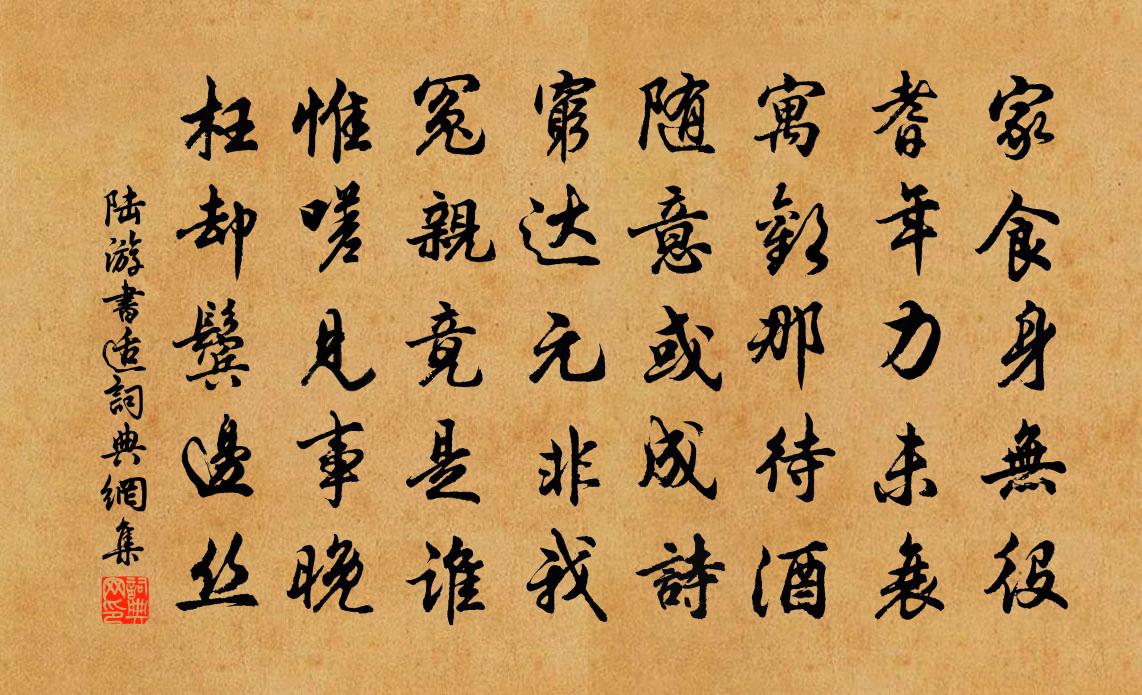 家食身無役
耆年力未衰
寓歡那待酒
随意或成詩
窮达元非我
冤親竟是誰
惟嗟見事晚
枉却鬓邊丝
陆游書适詞典網集
詞典网印